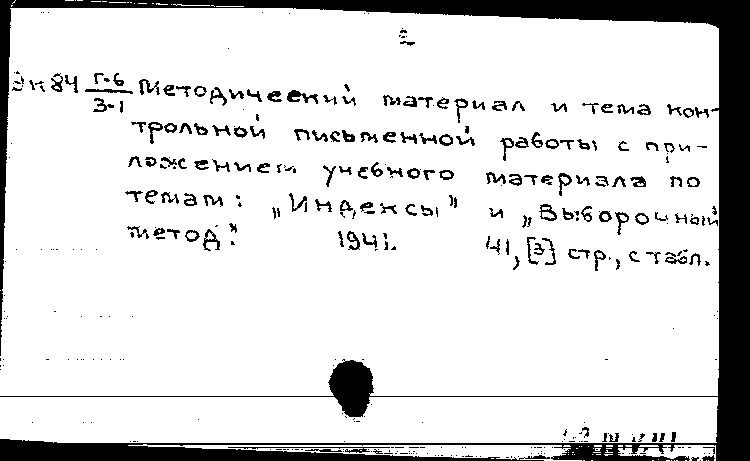 2
Эк84 Г-6/3-1 Методический материал и тема кон-
трольной письменной работы с при-
ложением учебного материала по
темам: „Индексы" и „Выборочный
метод". 1941. 41, [3] стр., с табл.